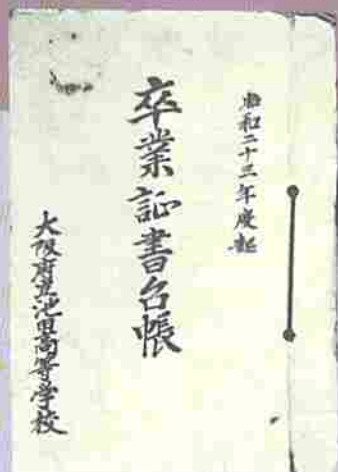 昭和二十三年度起
卒業証書台帳
大阪府立池田高等学校